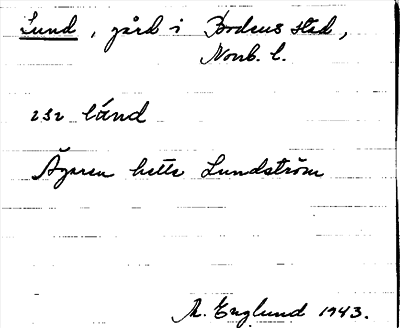 Lund, gård i Bodens stad,
Norrb. l.
lund
Ägaren hette Lundström
M. Englund 1943.